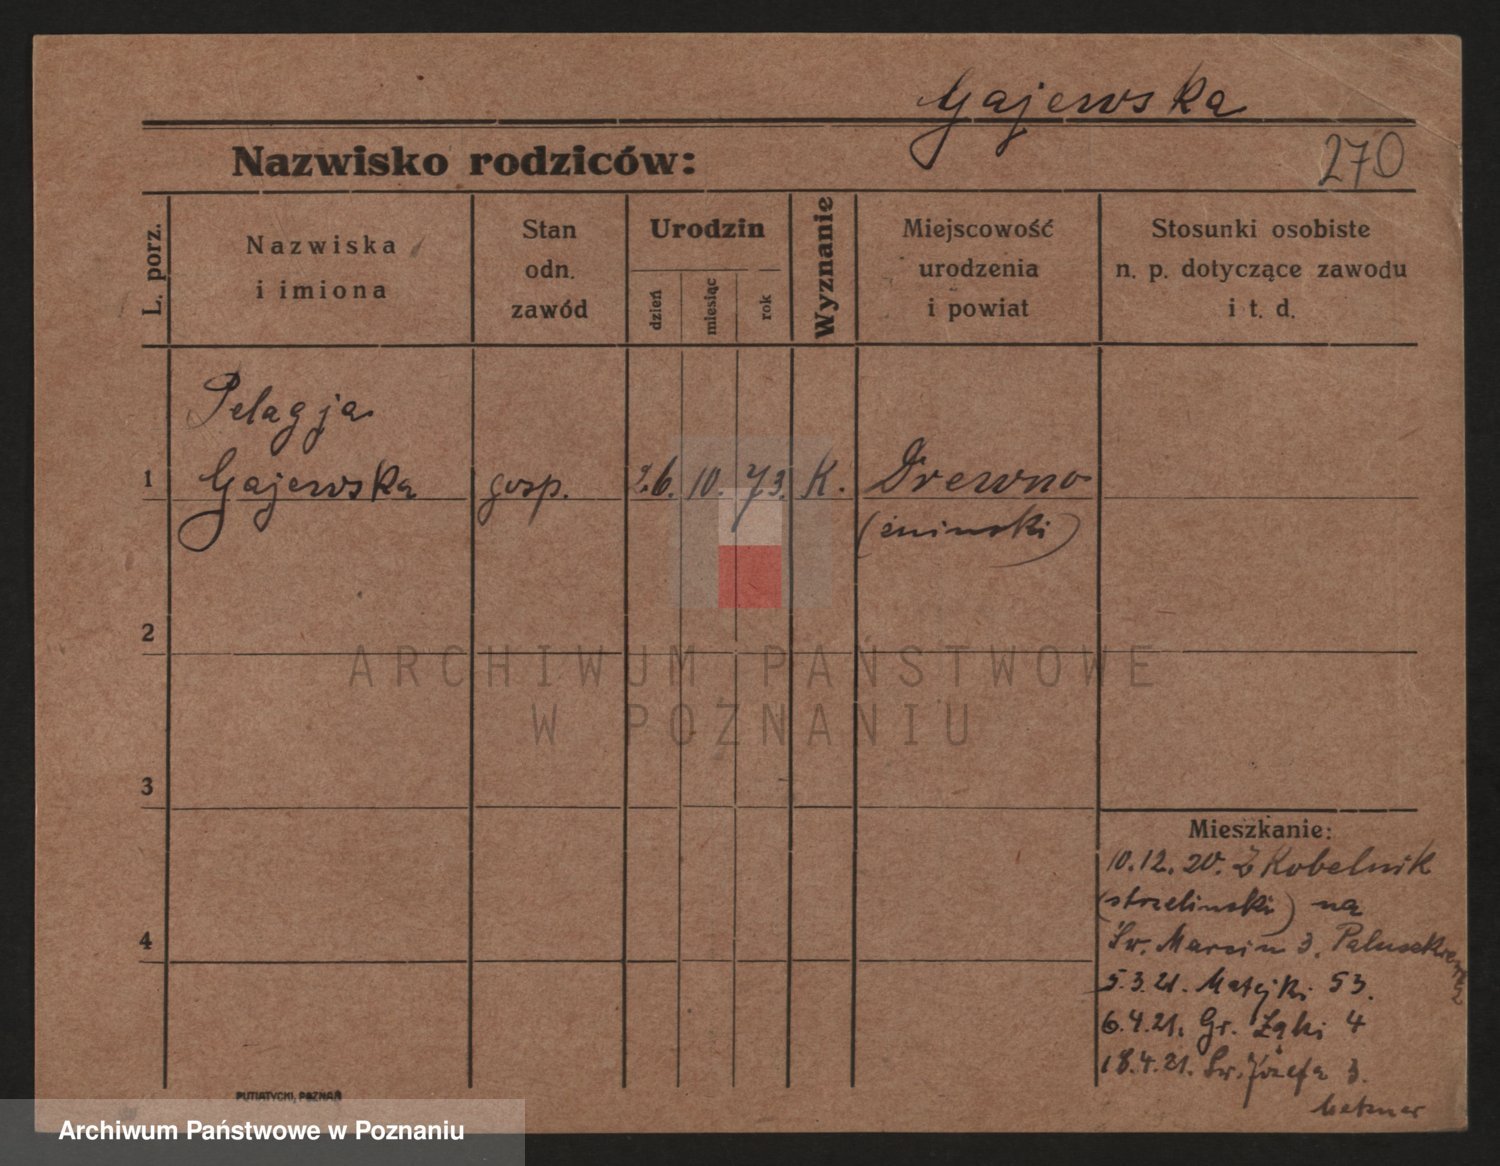 Gajewska
Nazwisko rodziców:
270
L. porz.
Nazwiska
i imiona
Stan
odn.
zawód
Urodzin
dzień
miesiąc
rok
Wyznanie
Miejscowość
urodzenia
i powiat
Stosunki osobiste
n. p. dotyczące zawodu
i t. d.
Pelagja
1 Gajewska gosp. 26. 10. 73. K. Drewno
(żninski)
2
3
4
ARCHIWUM PAŃSTWOWE
W POZNANIU
Mieszkanie:
10.12.20. Z Kobelnik
(strzelinski) na
Św. Marcin 3.
5.3.21. Matejki 53.
6.4.21. Gr. Łąki 4
18.4.21. Św. Józefa 3.
PUTIATYCKI, POZNAŃ
Archiwum Państwowe w Poznaniu